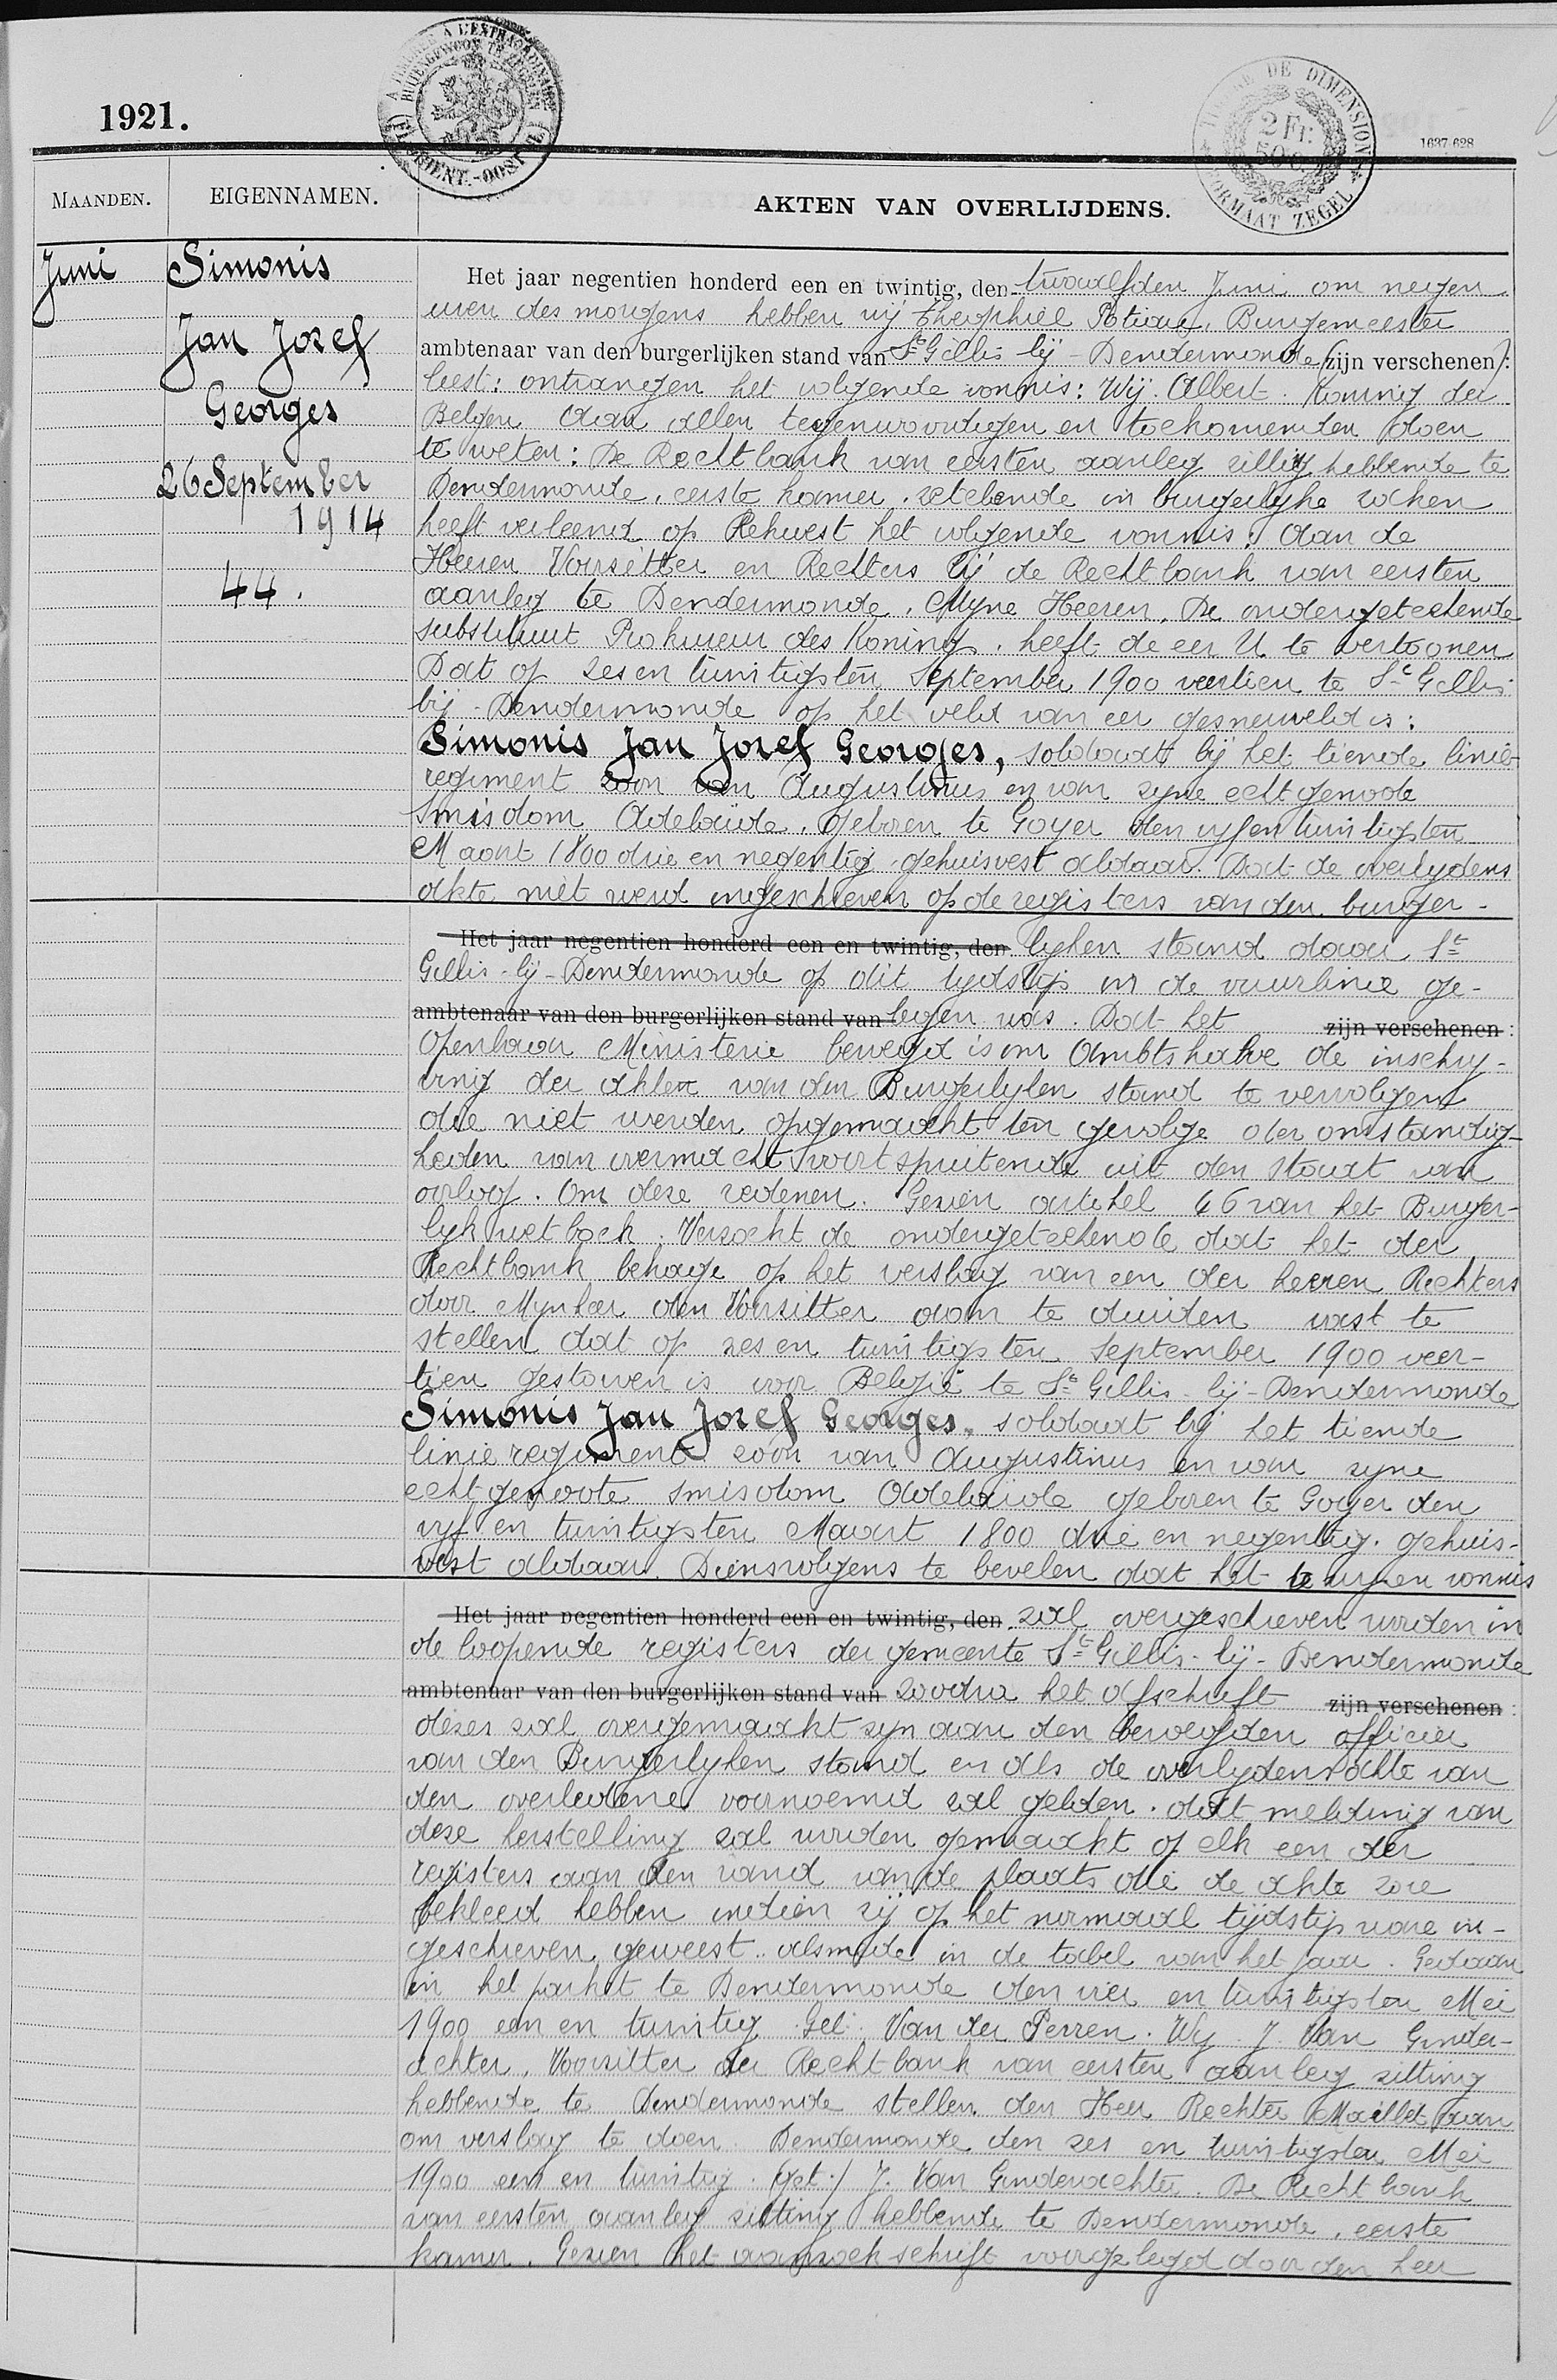 1921.
1637-628
2 Fr.
50 C.
MAANDEN.
EIGENNAMEN.
AKTEN VAN OVERLIJDENS.
Juni
Simonis
Jan Jozef
Georges
26 September
1914
44.
Het jaar negentien honderd een en twintig, den twaalfden Juni om negen
uren des morgens hebben wij Theophiel Burgemeester
ambtenaar van den burgerlijken stand van St Gillis bij-Dendermonde (zijn verschenen):
leest: ontvangen het volgende vonnis: Wij Albert Koning der
Belgen Aan allen tegenwoordigen en toekomenden doen
te weten: De Rechtbank van eersten aanleg zitting hebbende te
Dendermonde, eerste kamer, zetelende in burgerlyke zaken
heeft verleend op Rekwest het volgende vonnis: Aan de
Heeren Voorzitter en Rechters bij de Rechtbank van eersten
aanleg te Dendermonde. Myne Heeren, De ondergeteekende
substituut Prokureur des Konings, heeft de eer U te vertoonen
Dat op zes en twintigsten September 1900 veertien te St Gillis
bij-Dendermonde op het veld van eer gesneuveld is:
Simonis Jan Jozef Georges, soldaat bij het tiende linie
regiment zoon van Augustinus en van zyne echtgenoote
Smisdom Adelaïde, geboren te Goyer den vyf en twintigsten
Maart 1800 drie en negentig, gehuisvest aldaar. Dat de overlydens
akte niet werd ingeschreven op de registers van den burger-
Het jaar negentien honderd een en twintig, den lyken stand daar St
Gillis-bij-Dendermonde op dit tydstip in de vuurlinie ge-
ambtenaar van den burgerlijken stand van legen was. Dat het zijn verschenen:
Openbaar Ministerie bevoegd is om Ambtshalve de inschry-
ving der akten van den Burgerlyken stand te vervolgen
die niet werden opgemaakt ten gevolge der omstandig-
heden van overmacht voortspruitende uit den staat van
oorlog. Om deze redenen. Gezien artikel 46 van het Burger-
lyk wetboek. Verzoekt de ondergeteekende dat het der
Rechtbank behage op het verslag van een der heeren Rechters
door Mynheer den Voorzitter aan te duiden vast te
stellen dat op zes en twintigsten September 1900 veer-
tien gestorven is voor België te St Gillis-bij-Dendermonde
Simonis Jan Jozef Georges, soldaat bij het tiende
linie regiment zoon van Augustinus en van zyne
echtgenoote Smisdom Adelaïde geboren te Goyer den
vyf en twintigsten Maart 1800 drie en negentig, gehuis-
vest aldaar. Diensvolgens te bevelen dat het te wyzen vonnis
Het jaar negentien honderd een en twintig, den zal overgeschreven worden in
de loopende registers der gemeente St Gillis-bij-Dendermonde
ambtenaar van den burgerlijken stand van zoodra het afschrift zijn verschenen:
dezes zal overgemaakt zyn aan den bevoegden officier
van den Burgerlyken stand en als de overlydensakte van
den overledene voornoemd zal gelden, dat melding van
deze herstelling zal worden gemaakt op elk een der
registers aan den rand van de plaats die de akte zou
bekleed hebben indien zij op het normaal tijdstip ware in-
geschreven geweest, alsmede in de tabel van het jaar. Gedaan
in het parket te Dendermonde den vier en twintigsten Mei
1900 een en twintig. Get. Van der Perren. Wy J. Van Ginder-
achter, Voorzitter der Rechtbank van eersten aanleg zitting
hebbende te Dendermonde stellen den Heer Rechter Maillet aan
om verslag te doen. Dendermonde den zes en twintigsten Mei
1900 een en twintig. (get.) J. Van Ginderachter. De Rechtbank
van eersten aanleg zitting hebbende te Dendermonde, eerste
kamer. Gezien het aanzoekschrift voorgelegd door den heer